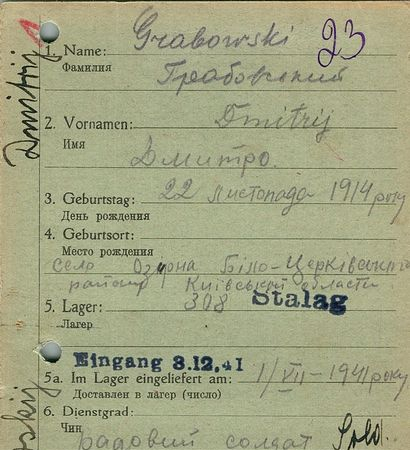 1. Name: Grabowski 23
Фамилия Грабовський
2. Vornamen: Dmitrij
Имя Дмитро.
3. Geburtstag: 22 листопада 1914 року
День рождения
4. Geburtsort:
Место рождения
село Біло-Церківського
району Київської области
5. Lager: 308 Stalag
Лагерь
Eingang 3.12.41
5a. Im Lager eingeliefert am: 1/VII-1941 року
Доставлен в лагерь (число)
6. Dienstgrad:
Чин
радовий солдат Sold.
Dmitrij